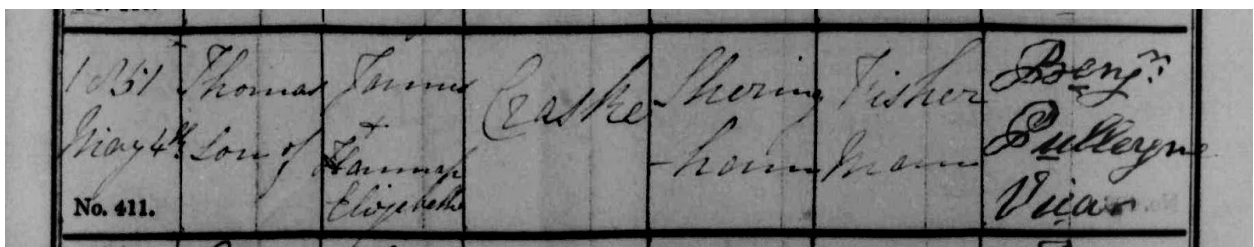 1851
May 4th
No. 411.
Thomas
Son of
James
+
Hannah
Elizabeth
Craske
Shering
-ham
Fisher
man
Benjn
Pulleyne
Vicar